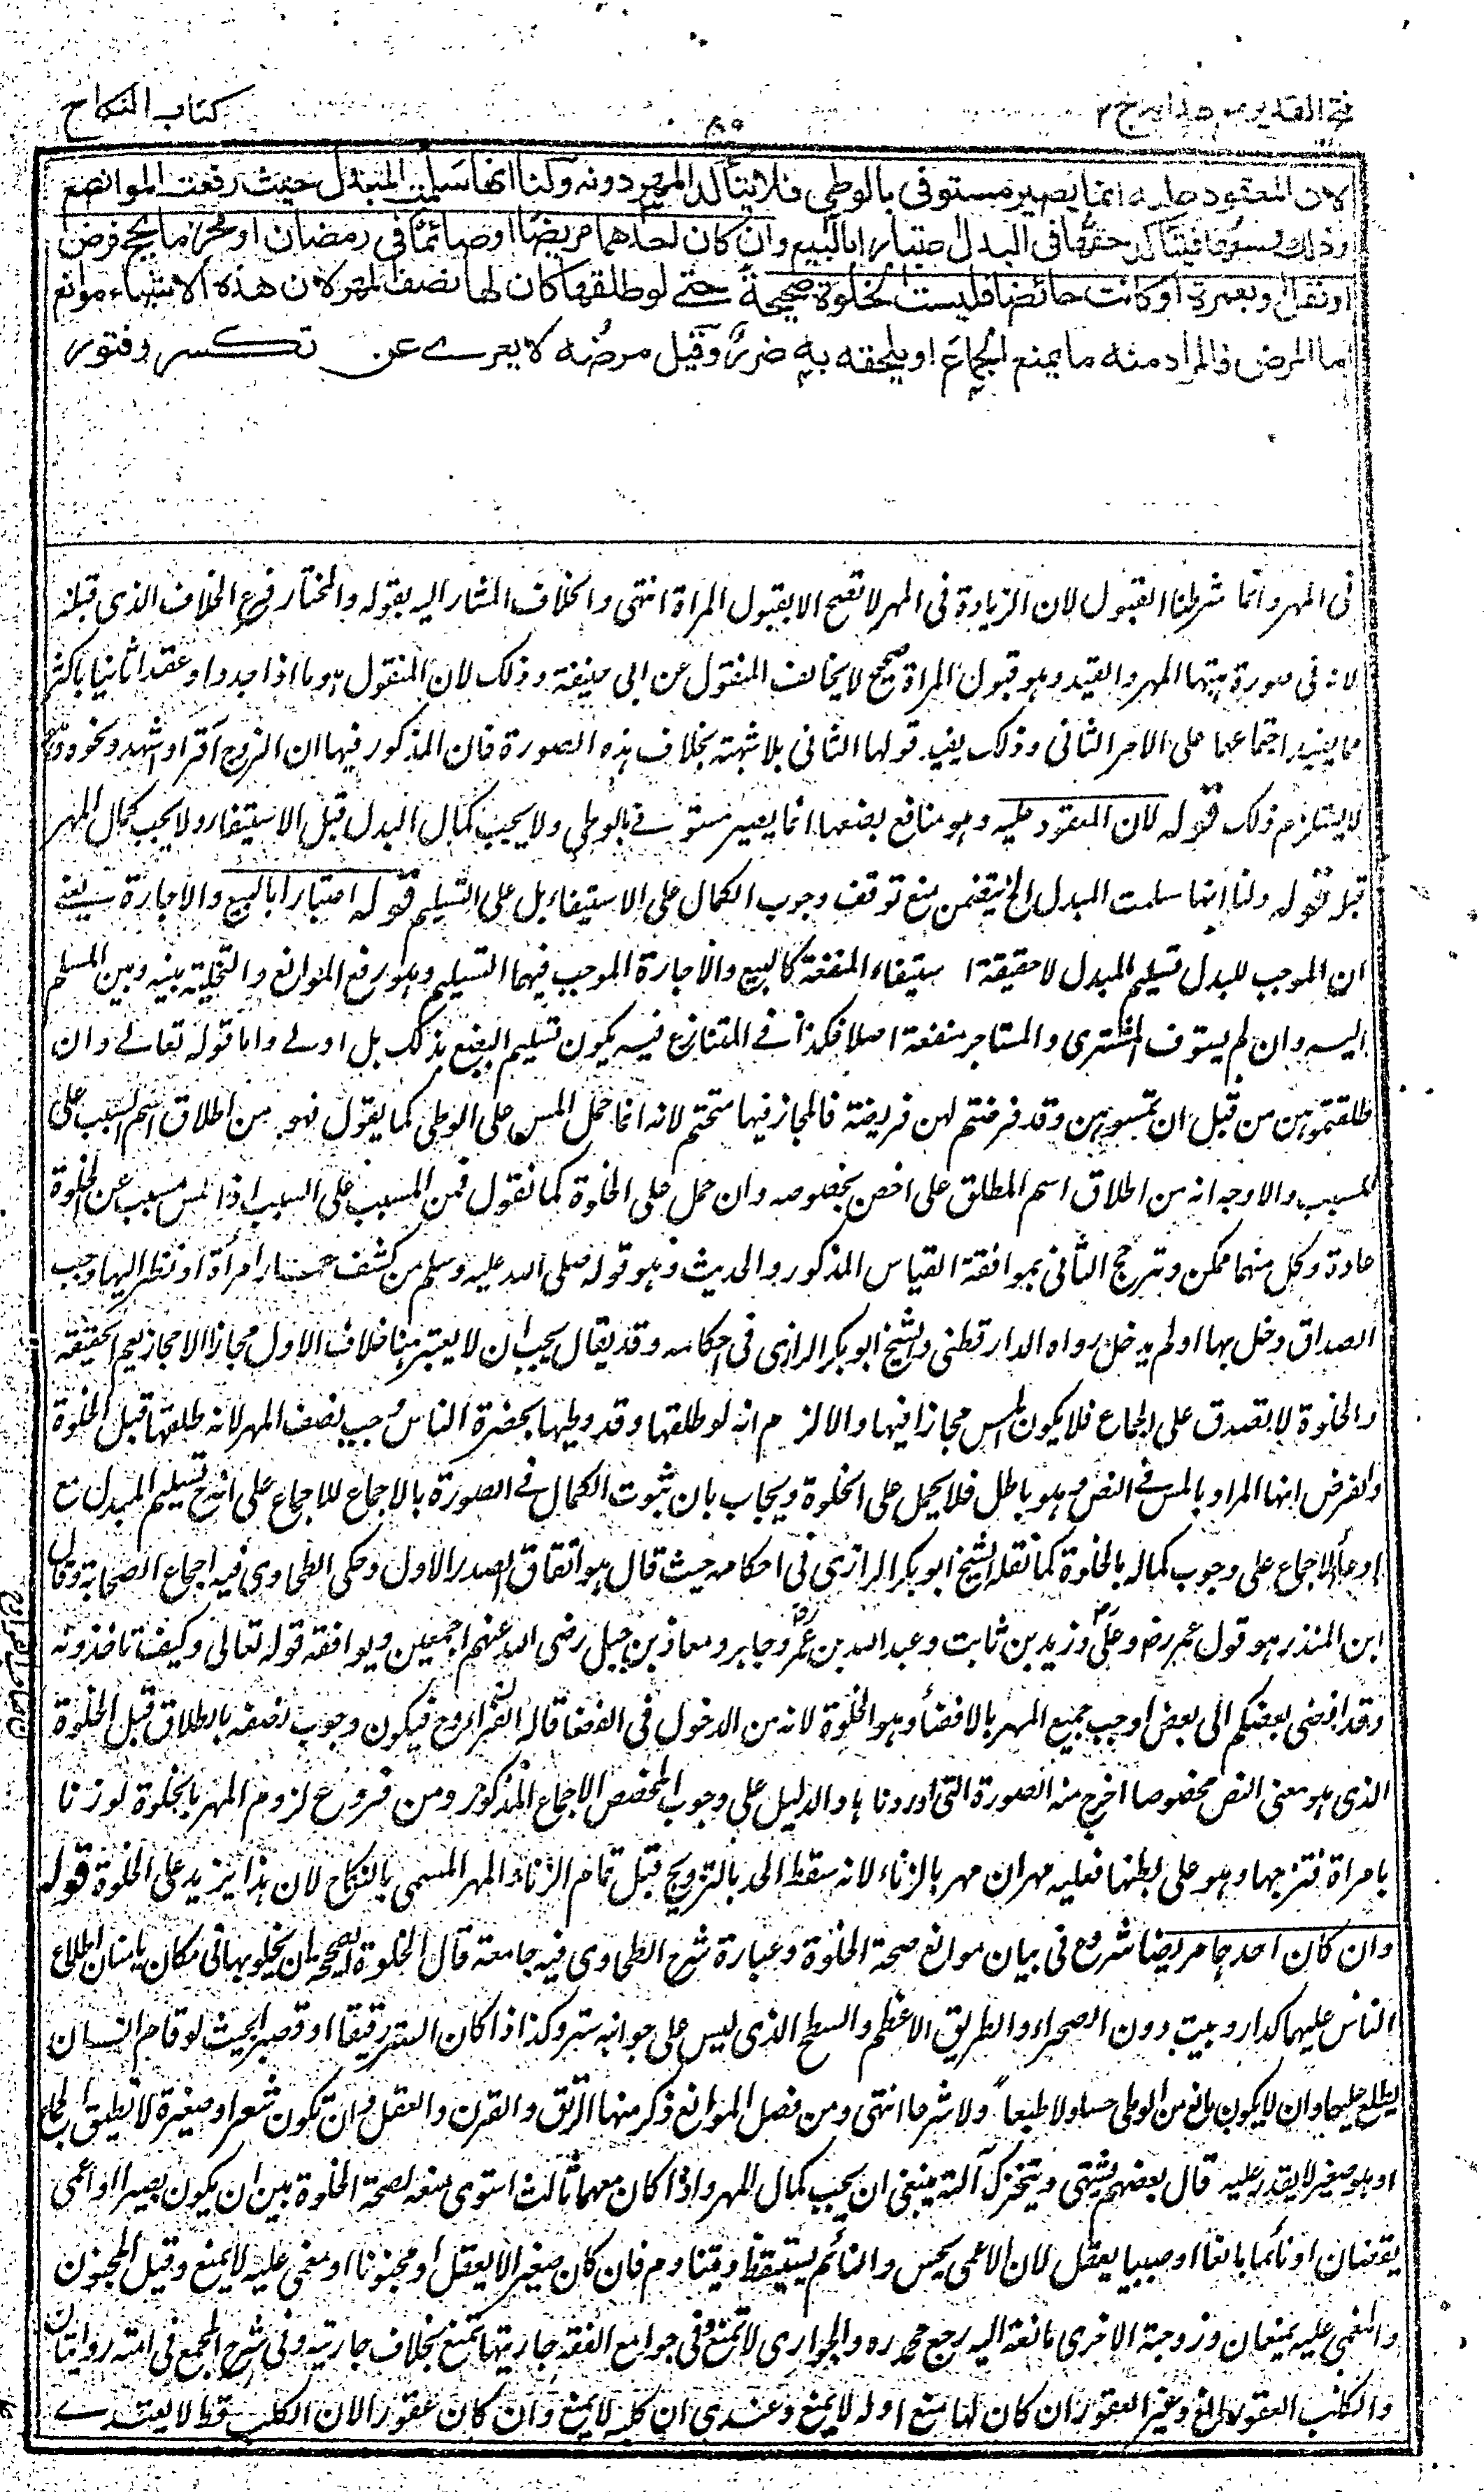 فتح القدير مع هدايه ج ٢
٨٩
كتاب النكاح
لان المعقود عليه انما يصير مستوفى بالوطي فلا يتأكد المهر دونه ولنا انها سلمت المبدل حيث رفعت الموانع
وذلك وسعها فيتأكد حقها في البدل اعتبارا بالبيع وان كان احدهما مريضا او صائما في رمضان او محرما بحج فرض
او نفل او بعمرة او كانت حائضا فليست الخلوة صحيحة حتے لو طلقها كان لها نصف المهر لان هذه الاشياء موانع
اما المرض فالمراد منه ما يمنع الجماع او يلحقه به ضرر وقيل مرضه لا يعرے عن تكسر وفتور
فى المهر وانما شرطنا القبول لان الزيادة فى المهر لا تصح الا بقبول المرأة انتهى والخلاف المشار اليه بقوله والمختار فرع الخلاف الذى قبله
لانه فى صورة هبتها المهر والقيد وهو قبول المرأة صحيح لا يخالف المنقول عن ابى حنيفة وذلك لان المنقول هو ما اذا جددا وعقدا ثانيا باكثر
مما يفيد اجتماعهما على الامر الثانى وذلك يفيد قولها الثانى بلا شبهة بخلاف هذه الصورة فان المذكور فيها ان الزوج اقر او اشهد ونحوه
لا يستلزم ذلك قوله لان المعقود عليه وهو منافع بضعها انما يصير مستوفے بالوطى ولا يجب كمال البدل قبل الاستيفاء ولا يجب كمال المهر
قبله قوله ولنا انها سلمت المبدل الخ يتضمن منع توقف وجوب الكمال على الاستيفاء بل على التسليم قوله اعتبارا بالبيع والاجارة يعنے
ان الموجب للبدل تسليم المبدل لا حقيقة استيفاء المنفعة كالبيع والاجارة الموجب فيهما التسليم وهو رفع الموانع والتخلية بينه وبين المسلم
اليه وان لم يستوف المشترى والمستاجر منفعة اصلا فكذا فے المتنازع فيه يكون تسليم البضع بذلك بل اولے واما قوله تعالے وان
طلقتموهن من قبل ان تمسوهن وقد فرضتم لهن فريضة فالمجاز فيها متحتم لانه انما حمل المس على الوطى كما يقول فهو من اطلاق اسم السبب على
المسبب والاوجه انه من اطلاق اسم المطلق على اخص بخصوصه وان حمل على الخلوة كما نقول فمن المسبب على السبب اذ المس مسبب عن الخلوة
عادة وكل منهما ممكن وترجح الثانى بموافقة القياس المذكور والحديث وهو قوله صلى الله عليه وسلم من كشف خمار امرأة او نظر اليها وجب
الصداق دخل بها او لم يدخل رواه الدار قطنى والشيخ ابو بكر الرازى فى احكامه وقد يقال يجب ان لا يعتبر هنا خلاف الاول مجازا الا مجاز يعم الحقيقة
والخلوة لا تصدق على الجماع فلا يكون المس مجازا فيها والا لزم انه لو طلقها وقد وطيها بحضرة الناس وجب نصف المهر لانه طلقها قبل الخلوة
والفرض انها المراد بالمس فے النص وهو باطل فلا يحمل على الخلوة ويجاب بان ثبوت الكمال فے الصورة بالاجماع للاجماع على انه تسليم المبدل مع
ادعاء الاجماع على وجوب كماله بالخلوة كما نقله الشيخ ابو بكر الرازى فى احكامه حيث قال هو اتفاق الصدر الاول وحكى الطحاوى فيه اجماع الصحابة وقال
ابن المنذر هو قول عمر رضـ وعلى وزيد بن ثابت وعبد الله بن عمر وجابر ومعاذ بن جبل رضى الله عنهم اجمعين ويوافقه قوله تعالى وكيف تاخذونه
وقد افضى بعضكم الى بعض اوجب جميع المهر بالافضاء وهو الخلوة لانه من الدخول فى الفضا قاله الفراء فيكون وجوب نصفه بالطلاق قبل الخلوة
الذى هو معنى النص مخصوصا اخرج منه الصورة التى اوردناها والدليل على وجوب المخصص الاجماع المذكور ومن فروع لزوم المهر بالخلوة لو زنا
بامرأة فتزوجها وهو على بطنها فعليه مهران مهر بالزناء لانه سقط الحد بالتزويج قبل تمام الزناء والمهر المسمى بالنكاح لان هذا يزيد على الخلوة قوله
وان كان احدهما مريضا شروع فى بيان موانع صحة الخلوة وعبارة شرح الطحاوى فيه جامعة قال الخلوة الصحيحة ان يخلو بها فى مكان يامنان اطلاع
الناس عليهما كدار وبيت دون الصحراء والطريق الاعظم والسطح الذى ليس على جوانبه ستر وكذا اذا كان الستر رقيقا او قصيرا بحيث لو قام انسان
يطلع عليهما وان لا يكون مانع من الوطى حسا ولا طبعا ولا شرعا انتهى ومن فصل الموانع ذكر منها الرتق والقرن والعفل وان تكون شعراء وصغيرة لا تطيق الجماع
او هو صغير لا يقدر عليه قال بعضهم يشتهى ويتحرك آلته ينبغى ان يجب كمال المهر واذا كان معهما ثالث استوى منعه لصحة الخلوة بين ان يكون بصيرا او اعمى
يقضان او نائما بالغا او صبيا يعقل لان الاعمى يحس والنائم يستيقظ ويتناوم فان كان صغيرا لا يعقل او مجنونا او مغمى عليه لا يمنع وقيل المجنون
والمغمى عليه يمنعان وزوجته الاخرى مانعة اليه رجع محمد رہ والجوارى لا تمنع وفى جوامع الفقه جاريتها تمنع بخلاف جاريته وفى شرح المجمع فى امته روايتان
والكلب العقور مانع وغير العقور ان كان لها منع او له لا يمنع وعندى ان كلبه لا يمنع وان كان عقورا لان الكلب قط لا يعتدے